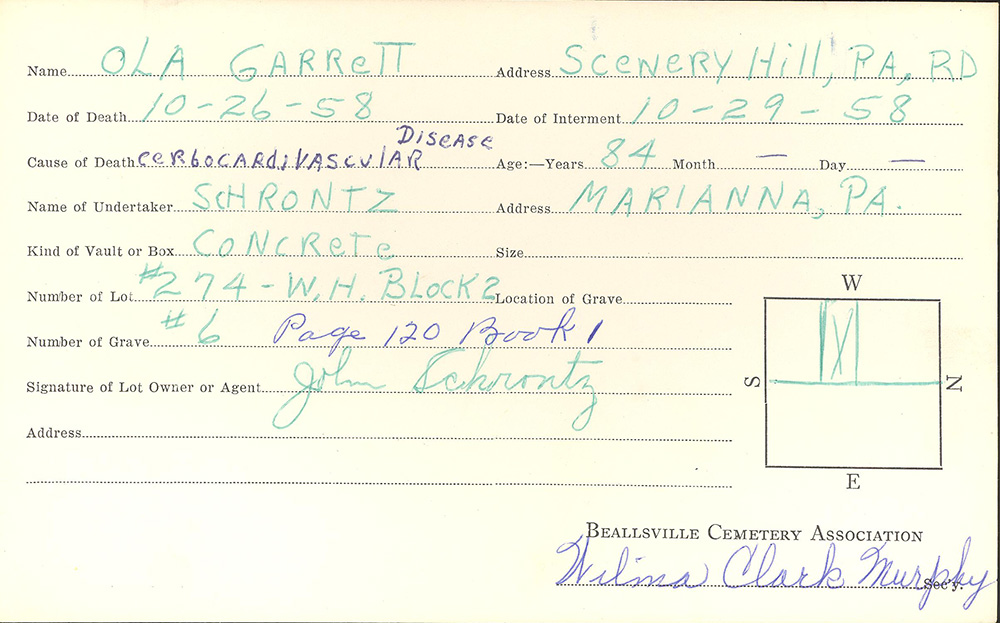 Name OLA GARRETT Address SCENERY Hill, PA, RD
Date of Death 10-26-58 Date of Interment 10-29-58
Cause of Death CERBOCARDIVASCULAR DISEASE Age:—Years 84 Month — Day —
Name of Undertaker SCHRONTZ Address MARIANNA, PA.
Kind of Vault or Box CONCRETE Size
Number of Lot #274-W.H. BLOCK 2 Location of Grave
Number of Grave #6 Page 120 Book 1
Signature of Lot Owner or Agent John Schrontz
Address
W
S N
E
BEALLSVILLE CEMETERY ASSOCIATION
Wilma Clark Murphy Sec'y.